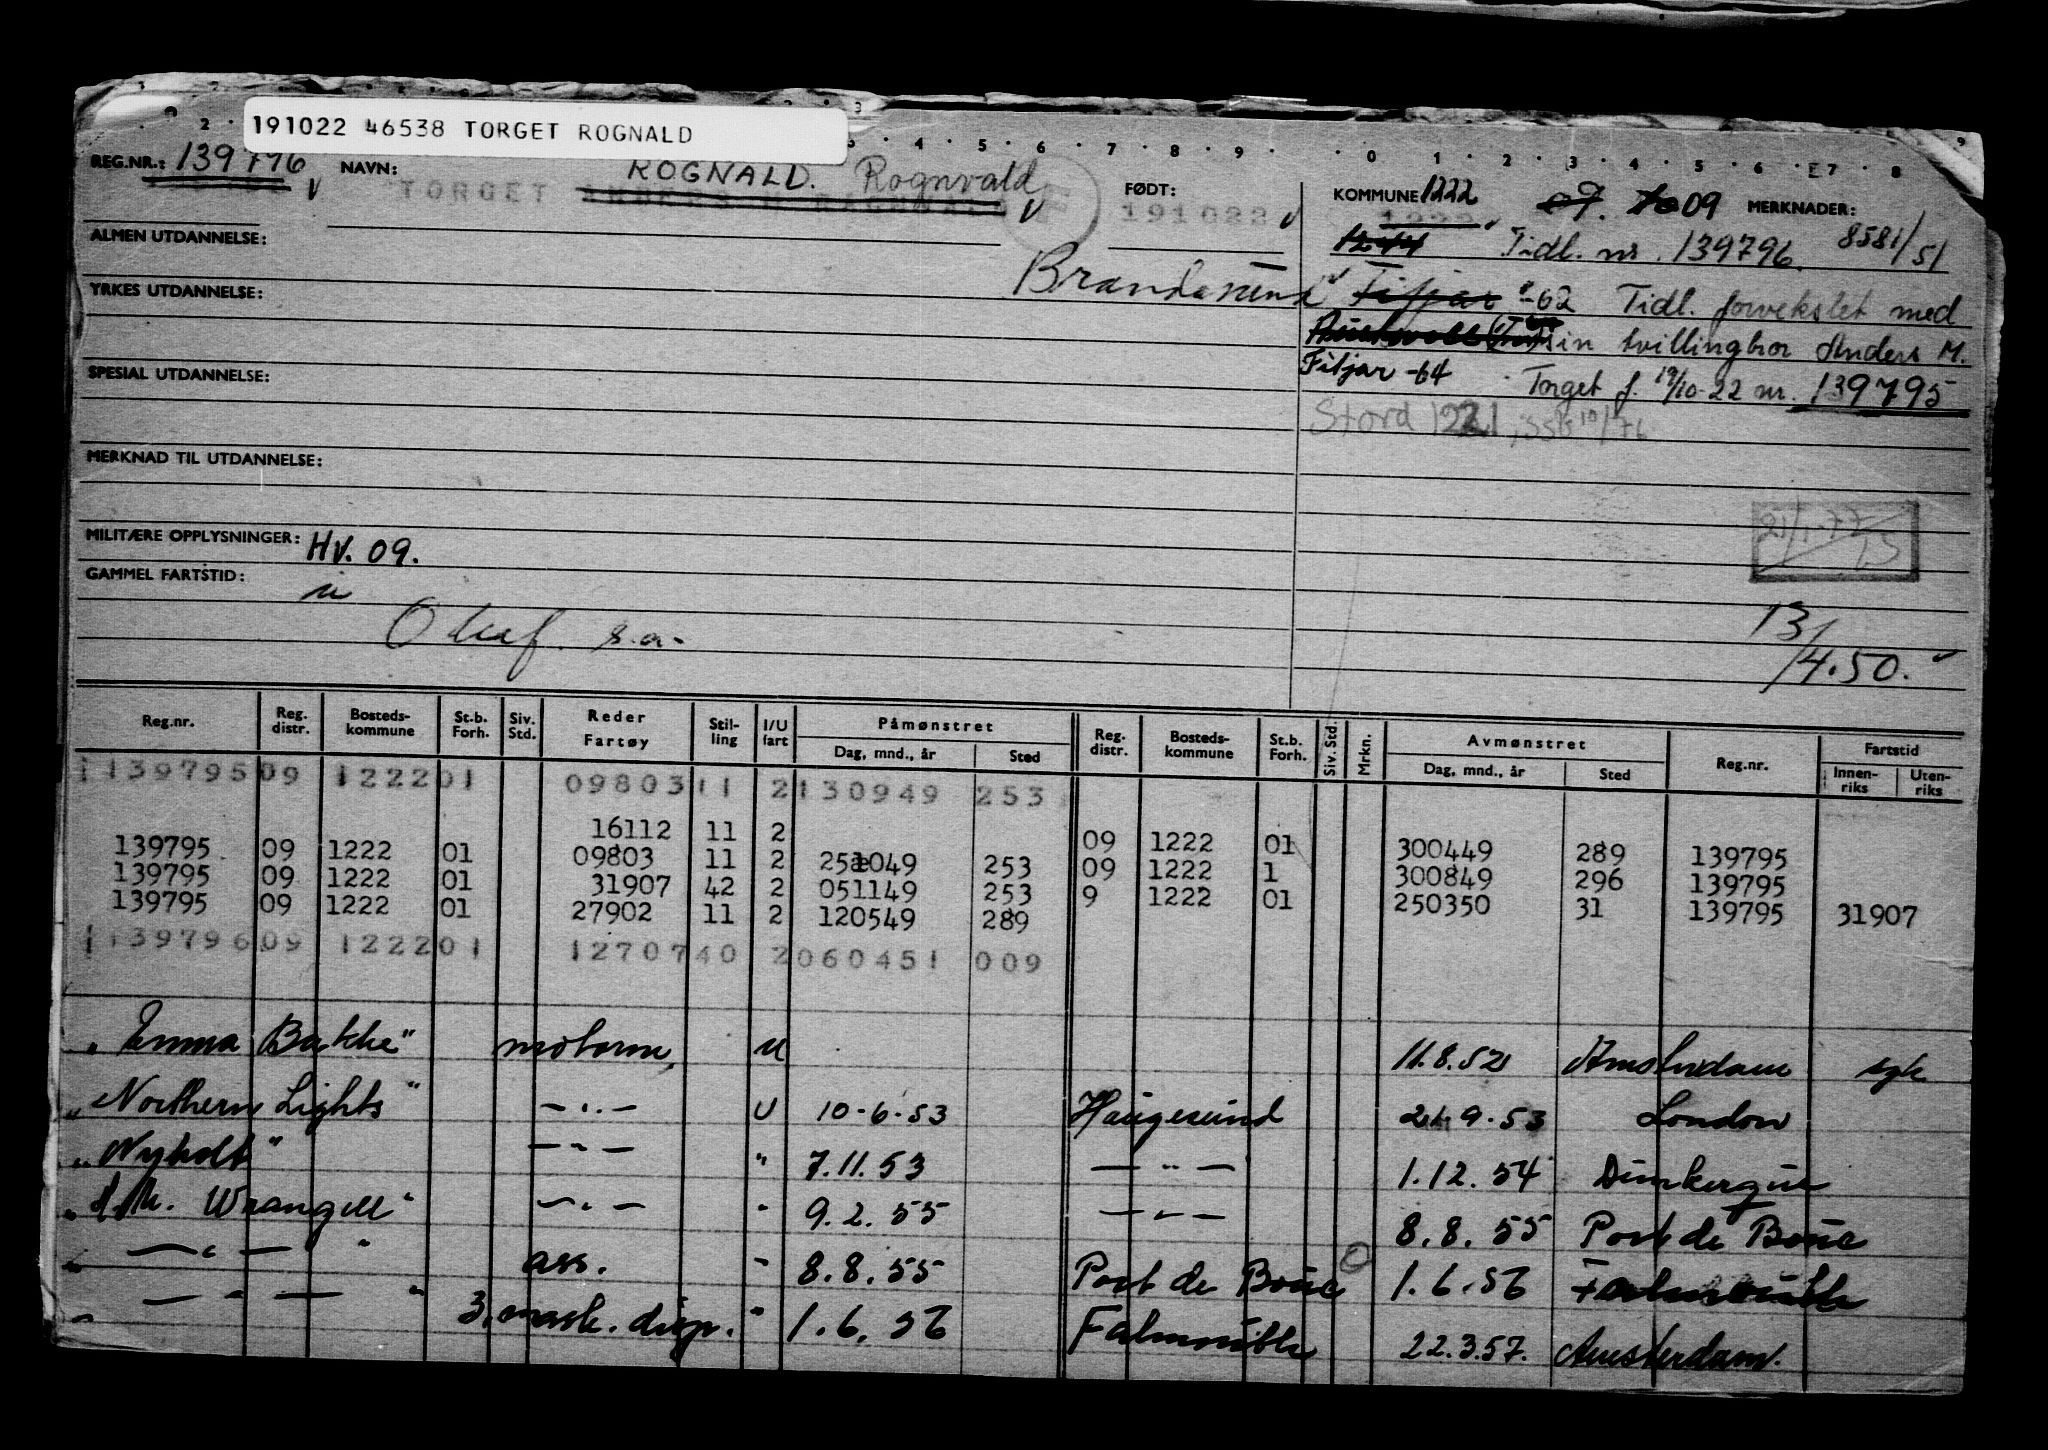 191022 46538 TORGET ROGNALD
REG.NR.: 139796 NAVN: ROGNALD. Rognvald FØDT: KOMMUNE 1222 09 MERKNADER:
TORGET ANDERS M RAGNVALD 191022 1222
ALMEN UTDANNELSE: 1244 Tidl. nr. 139796. 8581/51
YRKES UTDANNELSE: Brandasund Fitjar -62 Tidl. forvekslet med
(Tur) sin tvillingbror Anders M.
SPESIAL UTDANNELSE: Fitjar -64 Torget f. 19/10-22 nr. 139795
Stord 1221, SSB 10/76
MERKNAD TIL UTDANNELSE:
21/1-77
MILITÆRE OPPLYSNINGER: HV. 09.
GAMMEL FARTSTID:
s.a. 13/4.50.
Reg.nr. Reg. distr. Bosteds-kommune St.b. Forh. Siv. Std. Reder Fartøy Stil-ling I/U fart Påmønstret Dag, mnd., år Sted Reg. distr. Bosteds-kommune St.b. Forh. Siv. Std. Mrkn. Avmønstret Dag, mnd., år Sted Reg.nr. Fartstid Innen-riks Uten-riks
139795 09 1222 01 09803 11 2 130949 253
16112 11 2 09 1222 01 300449 289 139795
139795 09 1222 01 09803 11 2 251049 253 09 1222 1 300849 296 139795
139795 09 1222 01 31907 42 2 051149 253 9 1222 01 250350 31 139795 31907
139795 09 1222 01 27902 11 2 120549 289
139796 09 1222 01 12707 40 2 060451 009
"Emma Bakke" motorm. U 11.8.52 Amsterdam syk
"Northern Lights" -"- U 10-6-53 Haugesund 21.9.53 London
"Nyholt" -"- " 7.11.53 -"- 1.12.54 Dunkerque
" Wrangell" -"- " 9.2.55 -"- 8.8.55 Port de Bouc
" -"- " ass. " 8.8.55 Port de Bouc 1.6.56 Falmouth
" -"- " 3. mask. disp. " 1.6.56 Falmouth 22.3.57. Amsterdam.